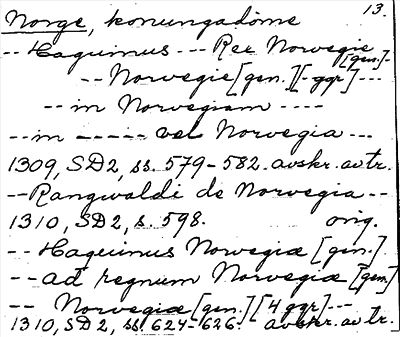 13.
Norge, konungadöme
-- Haquinus --- Rex Norwegie [gen.] -
-- Norwegie [gen.] [- ggr] ---
-- in Norwegiam ----
-- in ----- vel Norwegia ---
1309, SD2, ss. 579-582. avskr. av tr.
-- Rangwaldi de Norwegia --
1310, SD2, s. 598. orig.
-- Haquinus Norwegiæ [gen.]
-- ad regnum Norwegiæ [gen.]
-- Norwegiæ [gen.] [4 ggr] ---
1310, SD2, ss. 624-626. avskr. av tr.